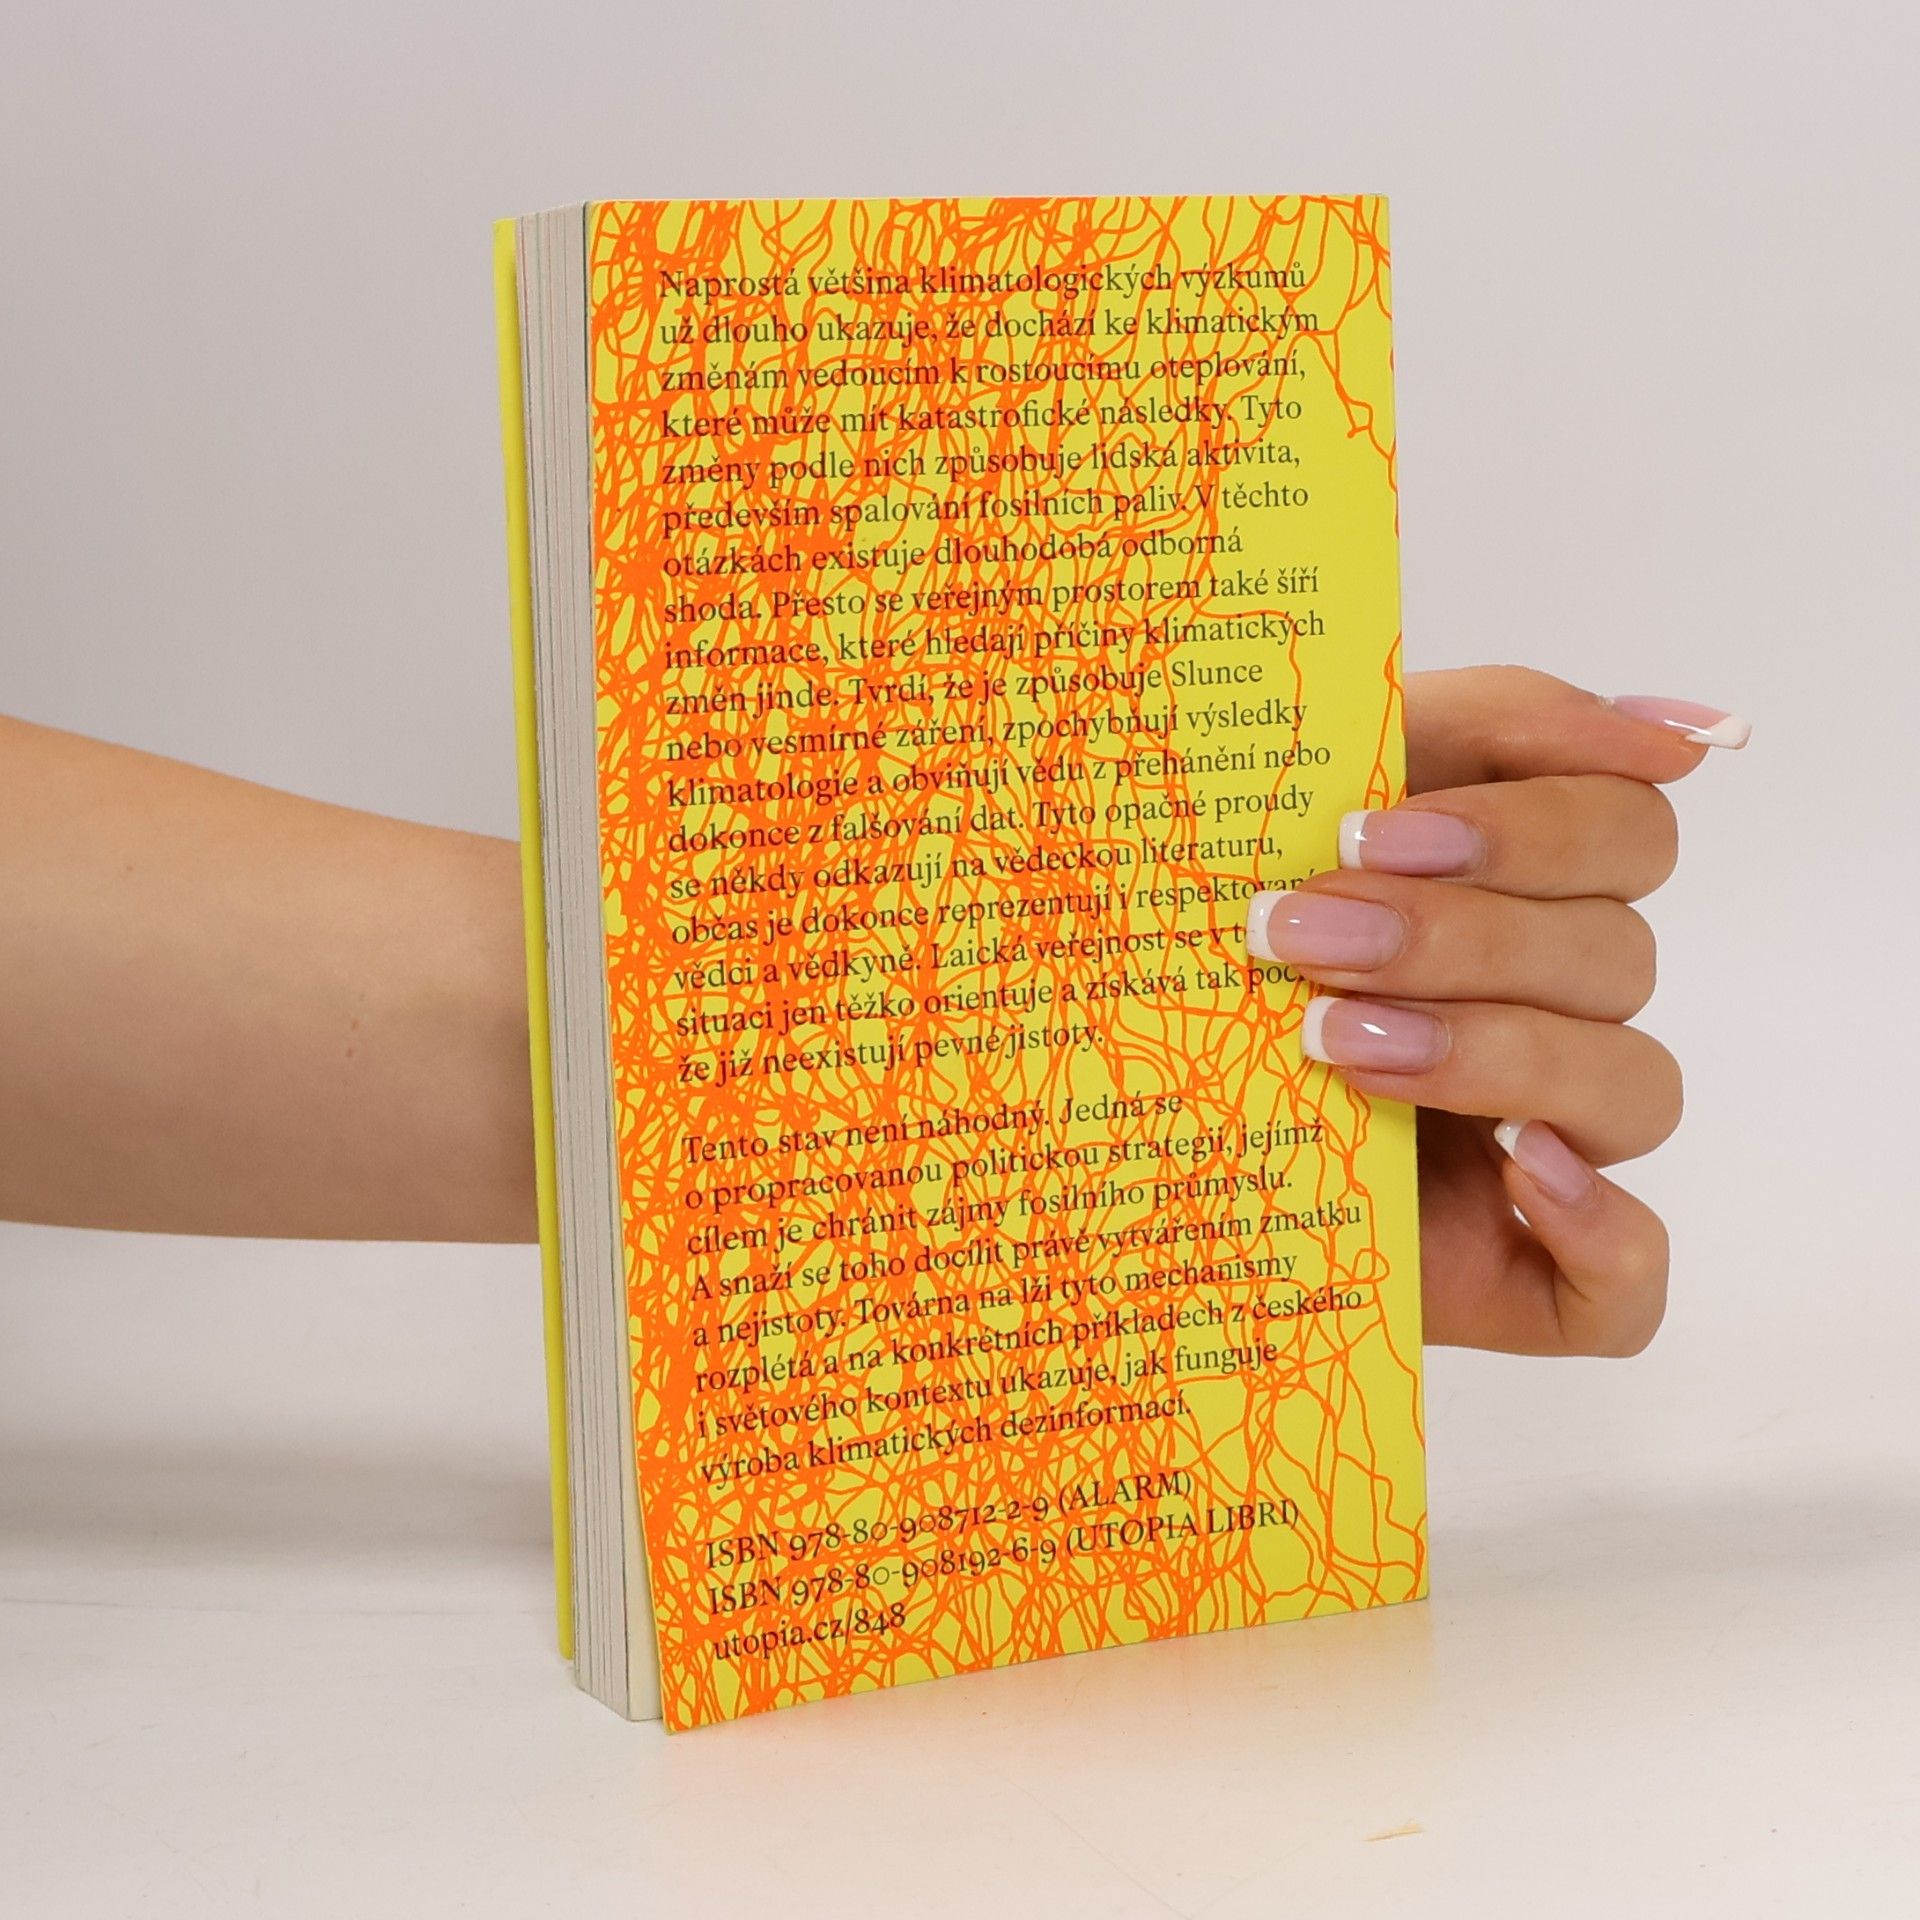 Naprostá většina klimatologických výzkumů
už dlouho ukazuje, že dochází ke klimatickým
změnám vedoucím k rostoucímu oteplování,
které může mít katastrofické následky. Tyto
změny podle nich způsobuje lidská aktivita,
především spalování fosilních paliv. V těchto
otázkách existuje dlouhodobá odborná
shoda. Přesto se veřejným prostorem také šíří
informace, které hledají příčiny klimatických
změn jinde. Tvrdí, že je způsobuje Slunce
nebo vesmírné záření, zpochybňují výsledky
klimatologie a obviňují vědu z přehánění nebo
dokonce z falšování dat. Tyto opačné proudy
se někdy odkazují na vědeckou literaturu,
občas je dokonce reprezentují i
vědci a vědkyně. Laická veřejnost se v
situaci jen těžko orientuje a získává tak
že již neexistují pevné jistoty.
Tento stav není náhodný. Jedná se
o propracovanou politickou strategii, jejímž
cílem je chránit zájmy fosilního průmyslu.
A snaží se toho docílit právě vytvářením zmatku
a nejistoty. Továrna na lži tyto mechanismy
rozplétá a na konkrétních příkladech z českého
i světového kontextu ukazuje, jak funguje
výroba klimatických dezinformací.
ISBN 978-80-908712-2-9 (ALARM)
ISBN 978-80-908192-6-9 (UTOPIA LIBRI)
utopia.cz/848